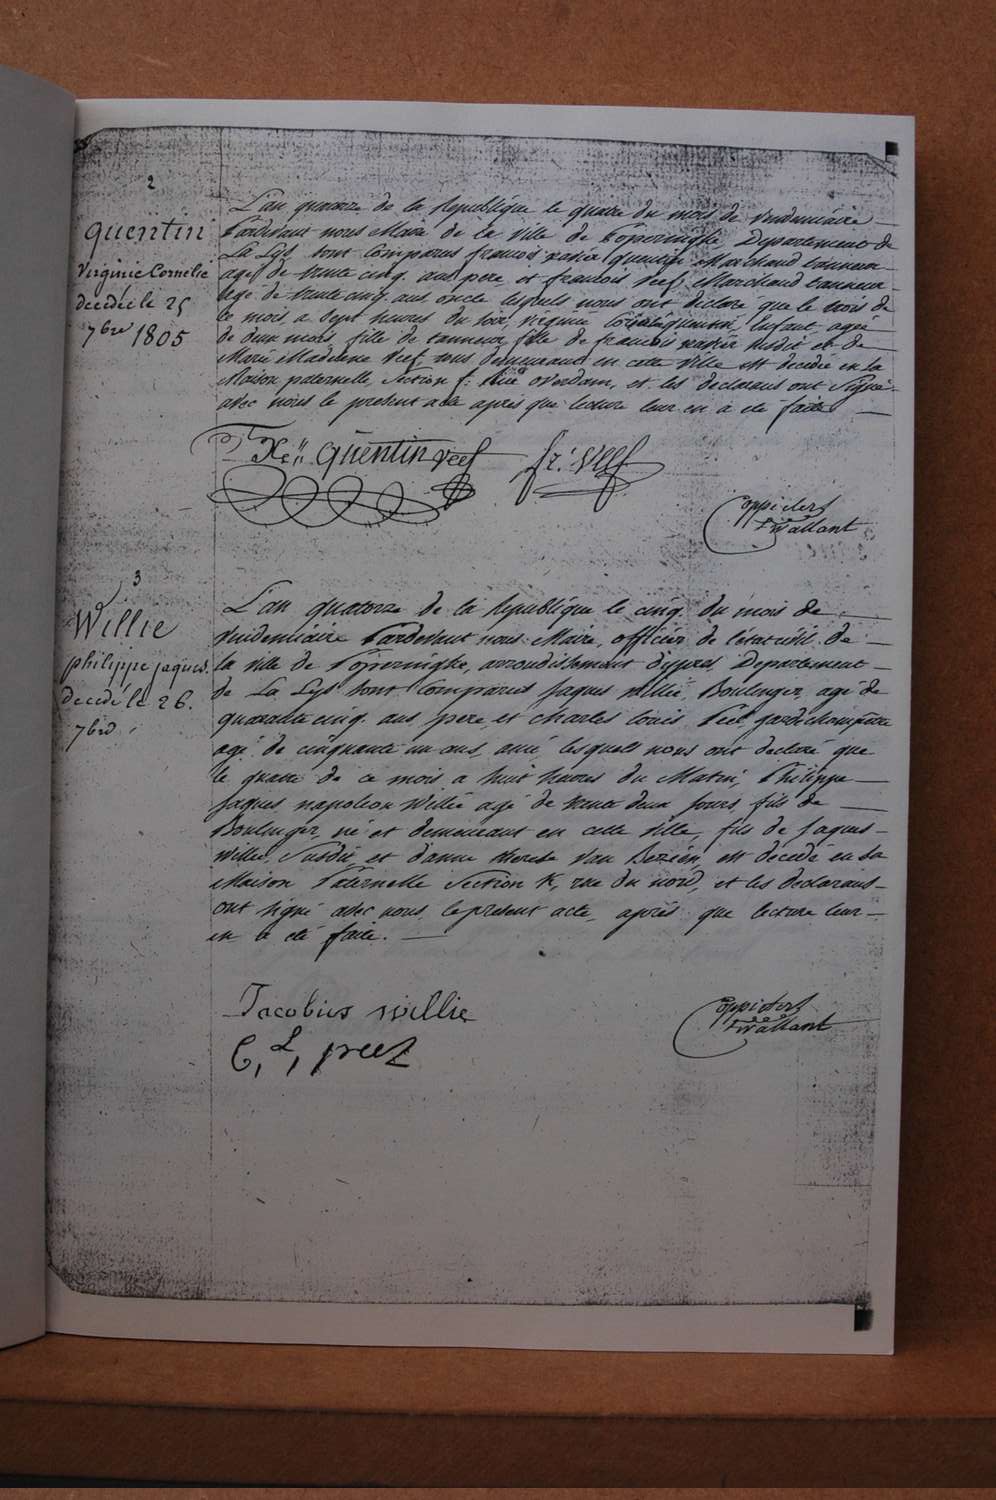 2
quentin
Virginie Cornelie
decedée le 25
7bre 1805
L'an quatorze de la Republique le quatre du mois de Vendemiaire
Pardevant nous Maire de la Ville de Poperinghe Departement de
La Lys, sont Comparus francois xavier quentin Marchand tanneur
agé de trente cinq ans pere et francois Veef Marchand tanneur
agé de trente cinq ans, oncle lesquels nous ont déclaré que le trois de
ce mois a sept heures du soir, virginie Cornelie quentin, Enfant agée
de deux mois, fille de tanneur, fille de francois xavier susdit et de
Marie Madelene Veef, tous demeurant en cette Ville est decedée en la
Maison paternelle, Section f: Rue overdam, et les declarans ont Signé
avec nous le present acte après que lecture leur en à été faite
Xer quentin veef fr: veef
Coppieters
t'wallant
3
Willie
philippe jaques
decedé le 26.
7bre
L'an quatorze de la Republique le cinq du mois de
Vendemiaire Pardevant nous Maire, officier de l'état civil de
la ville de Poperinghe, arrondissement d'ypres, Departement
de La Lys sont Comparus Jaques willie Boulenger, agé de
quarante cinq ans, pere, et charles louis Peel, gardechampetre
agé de cinquante un ans, ami, lesquels nous ont declaré que
le quatre de ce mois a huit heures du Matin, Philippe
Jaques napoleon Willie agé de trente deux Jours, fils de
Boulenger, né et demeurant en cette Ville, fils de Jaques
Willie, Susdit, et d'anne therese Van Bezien, est decedé en sa
Maison Paternelle Section K, rue du nord, et les declarans
ont signé avec nous le present acte, après que lecture leur
en a été faite.
Jacobus willie
C, L, peel
Coppieters
t'wallant